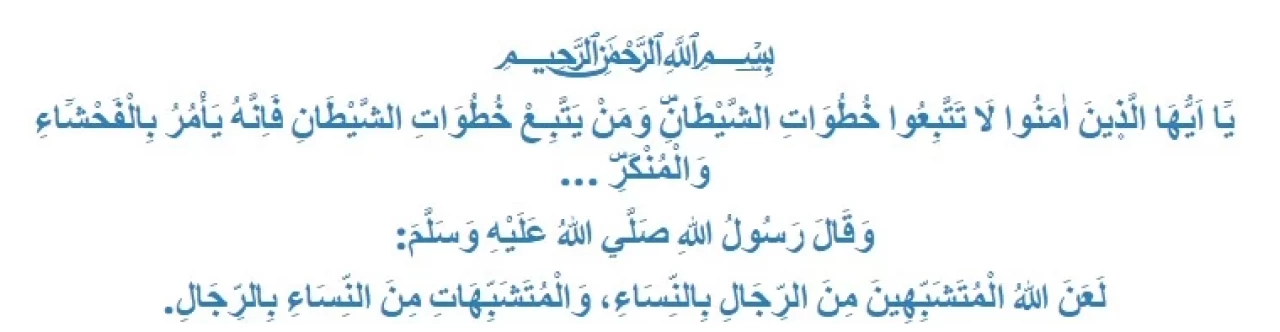 بِسْمِ اللَّهِ الرَّحْمَٰنِ الرَّحِيمِ
يَٓا اَيُّهَا الَّذ۪ينَ اٰمَنُوا لَا تَتَّبِعُوا خُطُوَاتِ الشَّيْطَانِۜ وَمَنْ يَتَّبِعْ خُطُوَاتِ الشَّيْطَانِ فَاِنَّهُ يَأْمُرُ بِالْفَحْشَٓاءِ
وَالْمُنْكَرِۜ ...
وَقَالَ رَسُولُ اللهِ صَلَّي اللهُ عَلَيْهِ وَسَلَّمَ:
لَعَنَ اللهُ الْمُتَشَبِّهِينَ مِنَ الرِّجَالِ بِالنِّسَاءِ، وَالْمُتَشَبِّهَاتِ مِنَ النِّسَاءِ بِالرِّجَالِ.